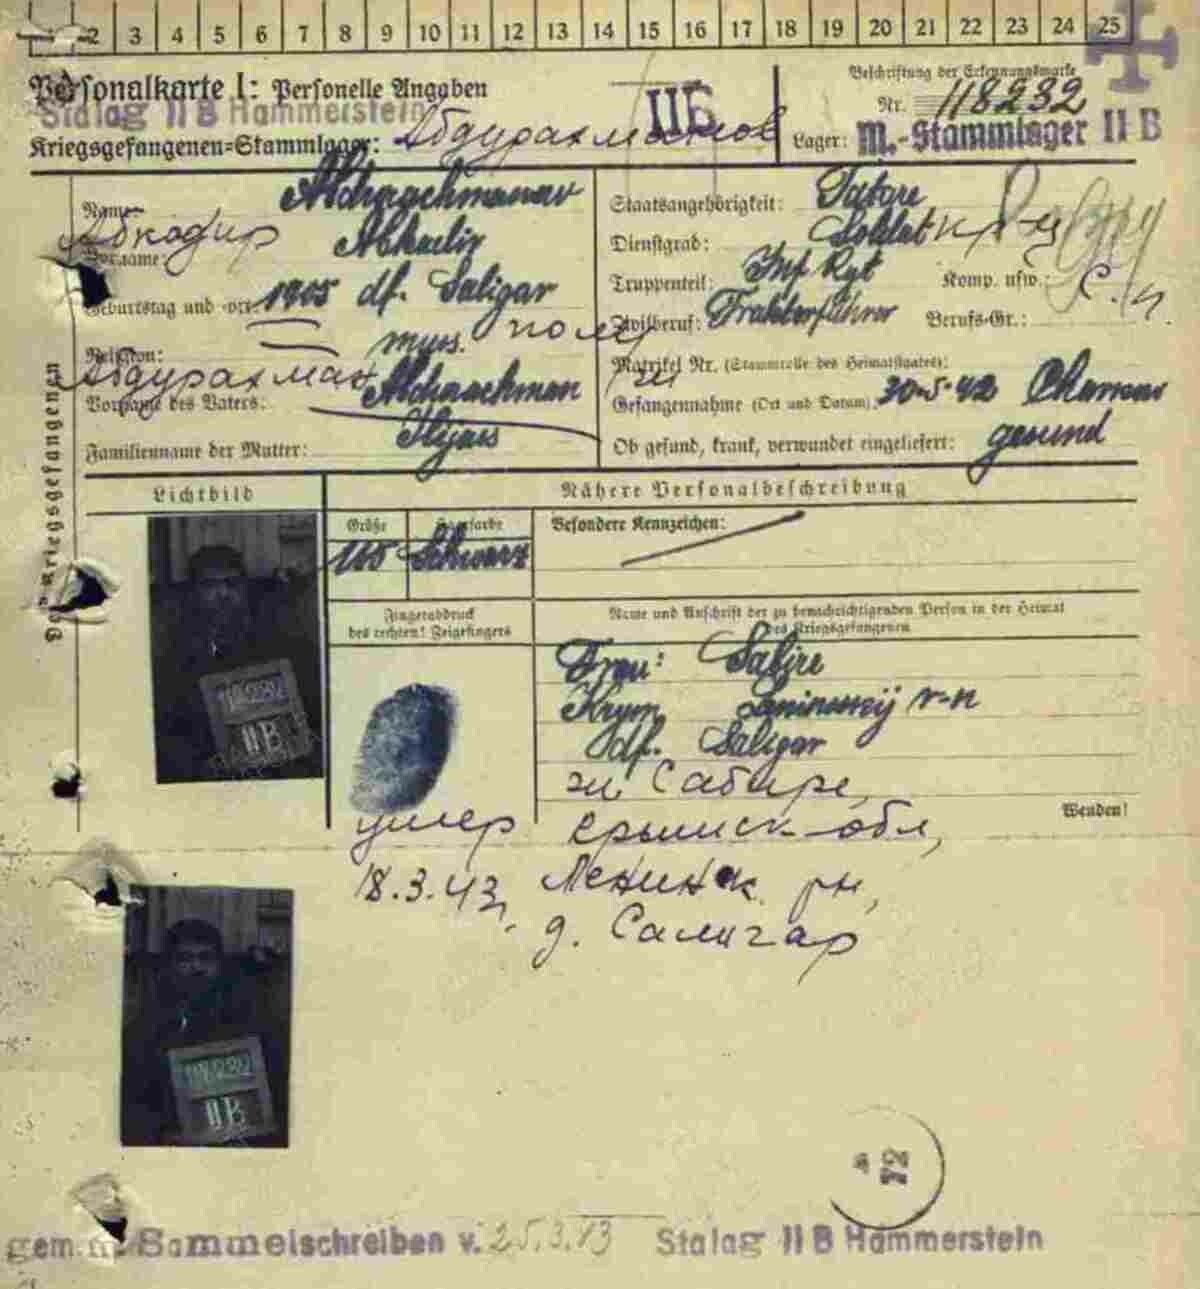 1 2 3 4 5 6 7 8 9 10 11 12 13 14 15 16 17 18 19 20 21 22 23 24 25
Personalkarte I: Personelle Angaben
Stalag II B Hammerstein
IIБ
Kriegsgefangenen=Stammlager: Абдурахманов
Beschriftung der Erkennungsmarke
Nr. 118232
Lager: M.-Stammlager II B
Name:
Абкадир
Vorname:
Geburtstag und -ort: 1905 df. Saligar
Religion: mus.
Абдурахман
Vorname des Vaters:
Familienname der Mutter:
Staatsangehörigkeit: Tatare
Dienstgrad: Soldat кр-ц
Truppenteil: Inf Rgt Komp. usw.:
Zivilberuf: Traktorführer Berufs-Gr.:
Matrikel Nr. (Stammrolle des Heimatstaates):
Gefangennahme (Ort und Datum): 30-5-42
Ob gesund, krank, verwundet eingeliefert: gesund
Des Kriegsgefangenen
Lichtbild
Nähere Personalbeschreibung
Größe Haarfarbe Besondere Kennzeichen:
165 Schwarz
Fingerabdruck
des rechten! Zeigefingers
Name und Anschrift der zu benachrichtigenden Person in der Heimat
des Kriegsgefangenen
Frau: Sabire
Krym Leninesskij r-n
df. Saligar
118232
II B
Wenden!
Сабире,
умер Крымск обл,
18.3.43г. Ленинск. рн,
д. Салигар
118232
II B
gem. m. Sammelschreiben v. 25.3.43 Stalag II B Hammerstein